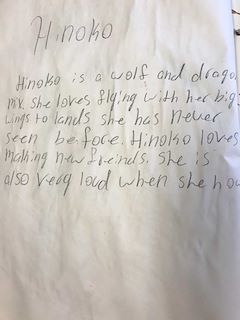 Hinoko
Hinoko is a wolf and drago
mix. She loves flying with her big
wings to lands she has never
seen before. Hinoko loves
making new freinds. She is
also very loud when she how